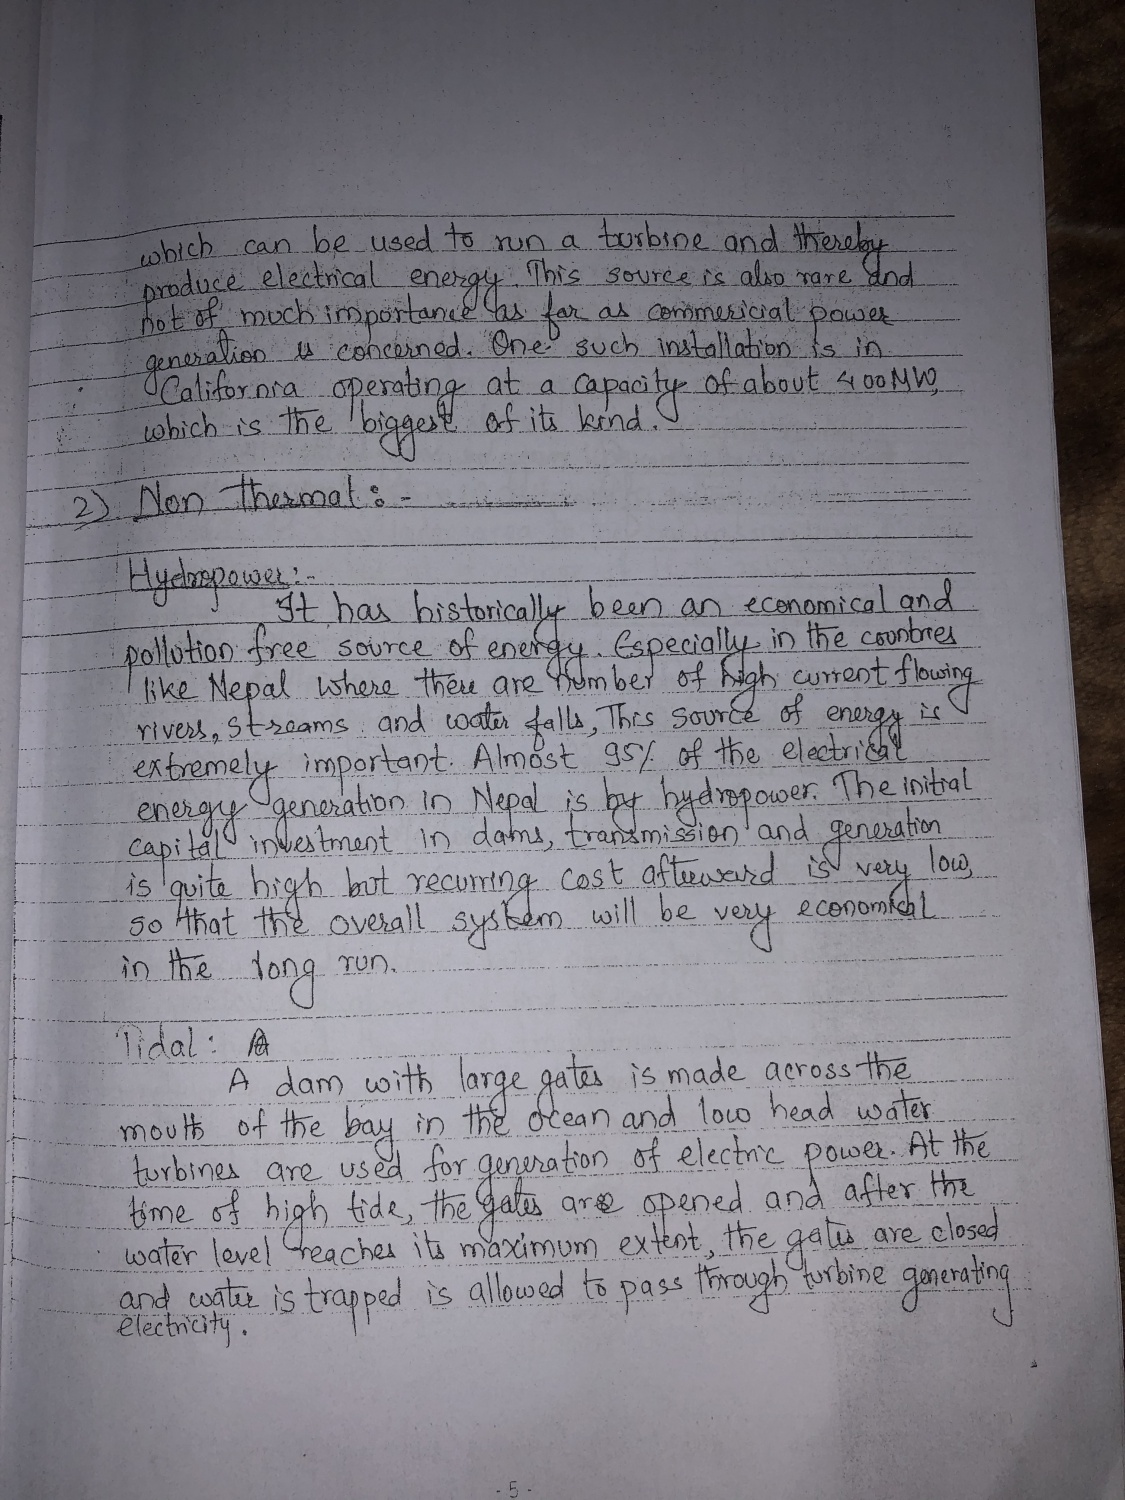 which can be used to run a turbine and thereby
produce electrical energy. This source is also rare and
not of much importance as far as commericial power
generation is concerned. One such installation is in
California operating at a capacity of about 400MW,
which is the biggest of its kind.
2) Non Thermal:-
Hydropower:-
It has historically been an economical and
pollution free source of energy. Especially in the countries
like Nepal where there are number of high current flowing
rivers, streams and water falls, This source of energy is
extremely important. Almost 95% of the electrical
energy generation in Nepal is by hydropower. The initial
capital investment in dams, transmission and generation
is quite high but recurring cost afterward is very low,
so that the overall system will be very economical
in the long run.
Tidal: A
A dam with large gates is made across the
mouth of the bay in the ocean and low head water
turbines are used for generation of electric power. At the
time of high tide, the gates are opened and after the
water level reaches its maximum extent, the gates are closed
and water is trapped is allowed to pass through turbine generating
electricity.
- 5 -